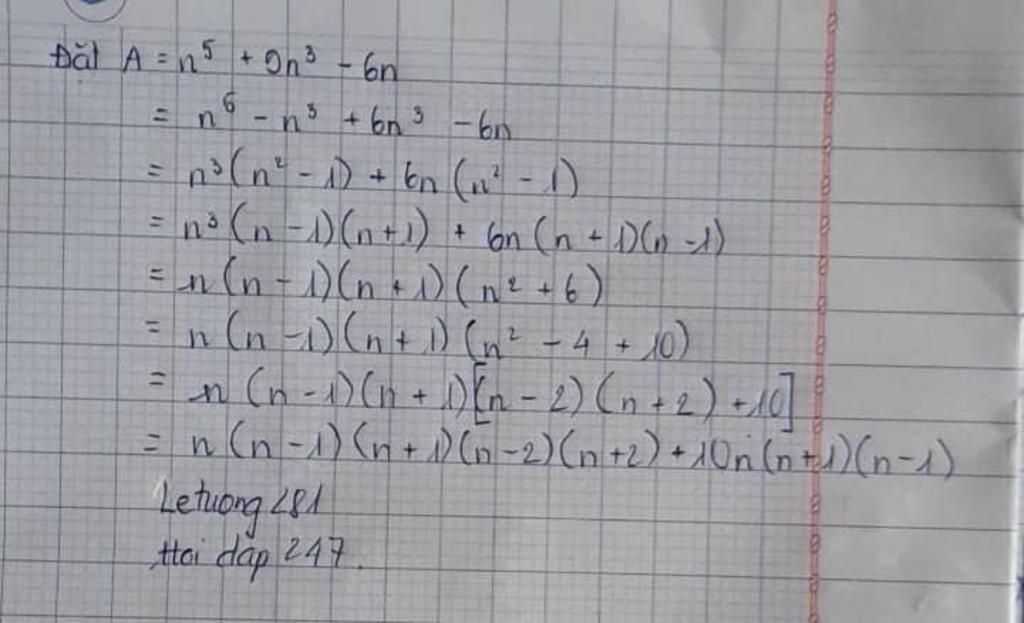 Đặt A = n⁵ + 5n³ - 6n
= n⁵ - n³ + 6n³ - 6n
= n³(n² - 1) + 6n (n² - 1)
= n³ (n - 1)(n + 1) + 6n (n + 1)(n - 1)
= n (n - 1)(n + 1) (n² + 6)
= n (n - 1)(n + 1) (n² - 4 + 10)
= n (n - 1)(n + 1)[(n - 2)(n + 2) + 10]
= n (n - 1)(n + 1)(n - 2)(n + 2) + 10n(n + 1)(n - 1)
Letuong281
Hoi đáp 247.